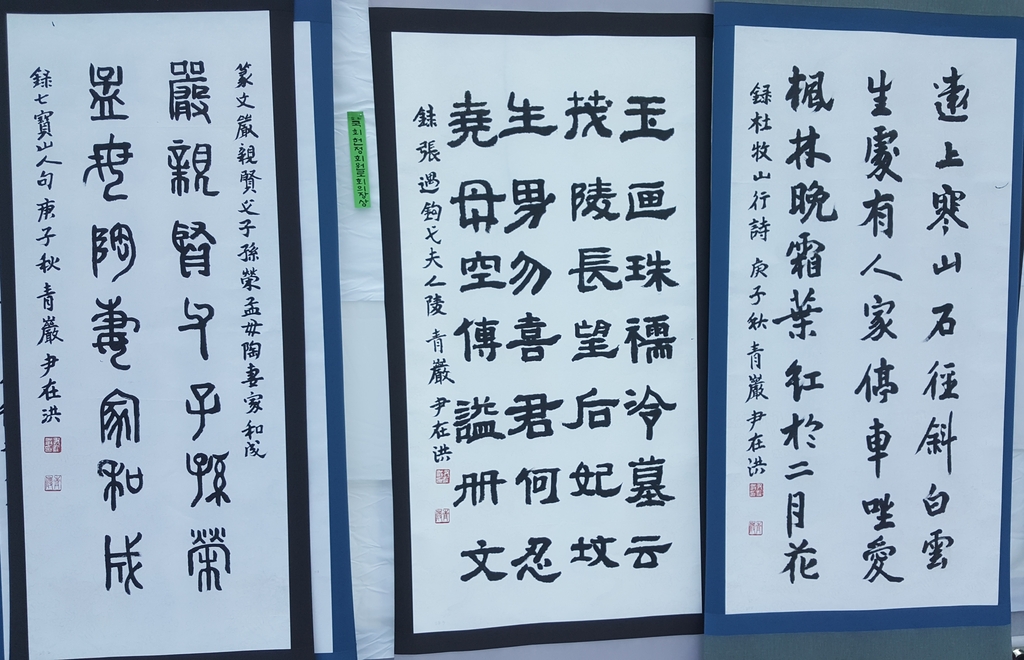 遠上寒山石徑斜白雲
生處有人家停車坐愛
楓林晚霜葉紅於二月花
錄杜牧山行詩 庚子秋 青巖 尹在洪
玉画珠襦冷墓云
茂陵長望后妃坟
生男勿喜君何忍
堯母空傳謚冊文
錄張遇鈎弋夫人陵 青巖 尹在洪
篆文嚴親賢父子孫榮孟母陶妻家和成
嚴親賢父子孫榮
孟母陶妻家和成
錄七寶山人句庚子秋青巖尹在洪